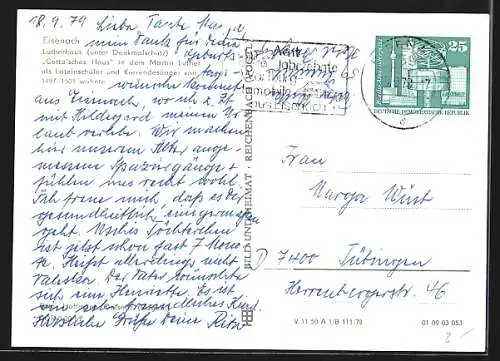 18. 9. 79 Liebe Tante Marga
Eisenach
Lutherhaus (unter Denkmalschutz)
"Cotta'sches Haus" in dem Martin Luther
als Lateinschüler und Kurrendesänger von
1497-1501 wohnte
mein Dank für Deine
wünsche kommt
aus Eisenach, wo ich z. Zt
mit Hildegard meinen Ur-
laub verlebe. Wir machen
hier unserem Alter ange-
messene Spaziergänge +
fühlen uns recht wohl.
Ich freue mich, daß es Dir
gesundheitlich einigermaßen
geht.
ist jetzt schon fast 7 Mona-
te. Heißt allerdings nicht
Der Vater wünschte
sich eine Henriette. Es ist
ein freundliches Kind.
Herzliche Grüße Deine Rita
Jahrzehnte
Auto-
mobile
aus Eisenach
25
DEUTSCHE DEMOKRATISCHE REPUBLIK
BILD UND HEIMAT · REICHENBACH (VOGTL)
Frau
Marga Wüst
D 7400 Tübingen
Herrenbergerstr. 46
V 11 50 A 1/B 111/79
01 09 03 053
2.-